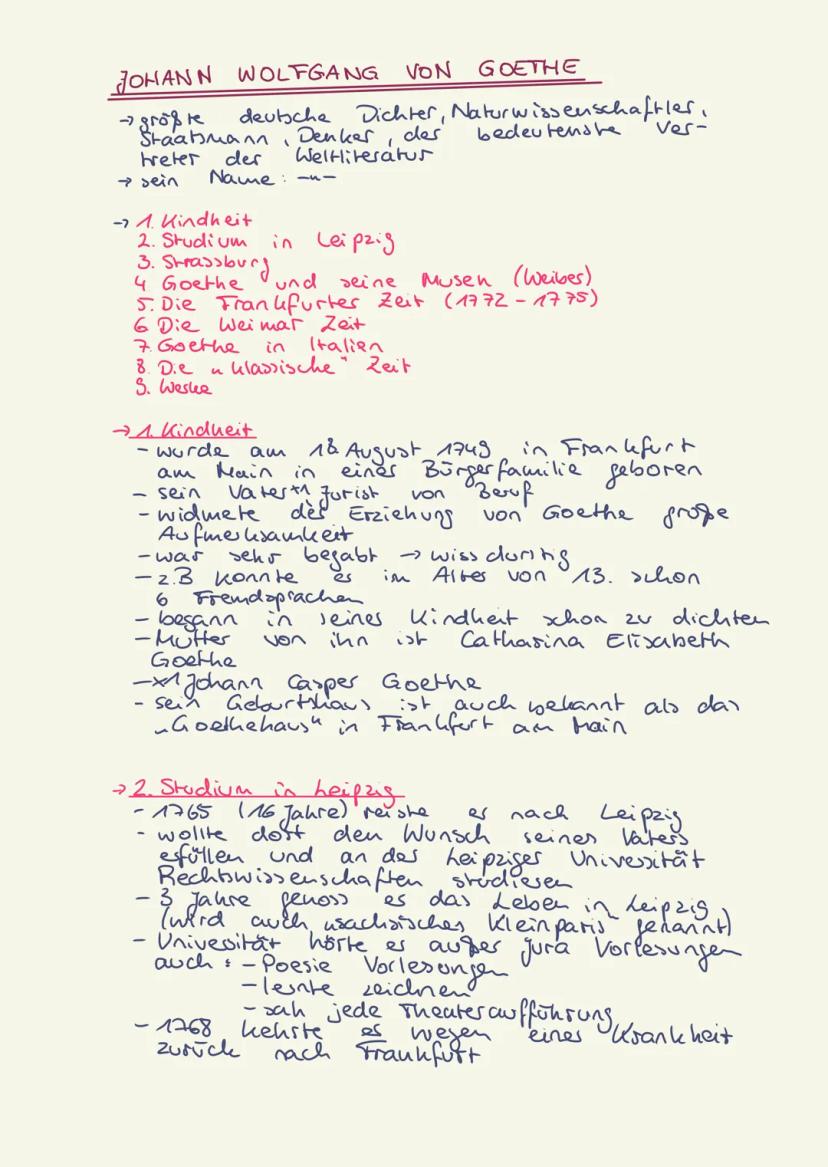 JOHANN WOLFGANG VON GOETHE
→ größte deutsche Dichter, Naturwissenschaftler,
Staatsmann, Denker, der bedeutenste Ver-
treter der Weltliteratur
→ sein Name: -"-
→ 1. Kindheit
2. Studium in Leipzig
3. Strassburg
4 Goethe und seine Musen (Weiber)
5. Die Frankfurter Zeit (1772-1775)
6 Die Weimar Zeit
7. Goethe in Italien
8. Die "klassische" Zeit
9. Werke
→ 1. Kindheit
- wurde am 18 August 1749 in Frankfurt
am Main in einer Bürgerfamilie geboren
- sein Vater*1 Jurist von Beruf
- widmete der Erziehung von Goethe große
Aufmerksamkeit
- war sehr begabt → wissdurstig
- z.B konnte er im Alter von 13. schon
6 Fremdsprachen
- begann in seiner Kindheit schon zu dichten
- Mutter von ihn ist Catharina Elisabeth
Goethe
- *1 Johann Casper Goethe
- sein Geburtshaus ist auch bekannt als das
"Goethehaus" in Frankfurt am Main
→ 2. Studium in Leipzig
- 1765 (16 Jahre) reiste er nach Leipzig
- wollte dort den Wunsch seines Vaters
erfüllen und an der Leipziger Universität
Rechtswissenschaften studieren
- 3 Jahre genoss er das Leben in Leipzig
(wird auch "sächsisches Kleinparis" genannt)
- Univesität hörte er außer Jura Vorlesungen
auch: - Poesie Vorlesungen
- lernte zeichnen
- sah jede Theateraufführung
- 1768 kehrte er wegen einer Krankheit
zurück nach Frankfurt